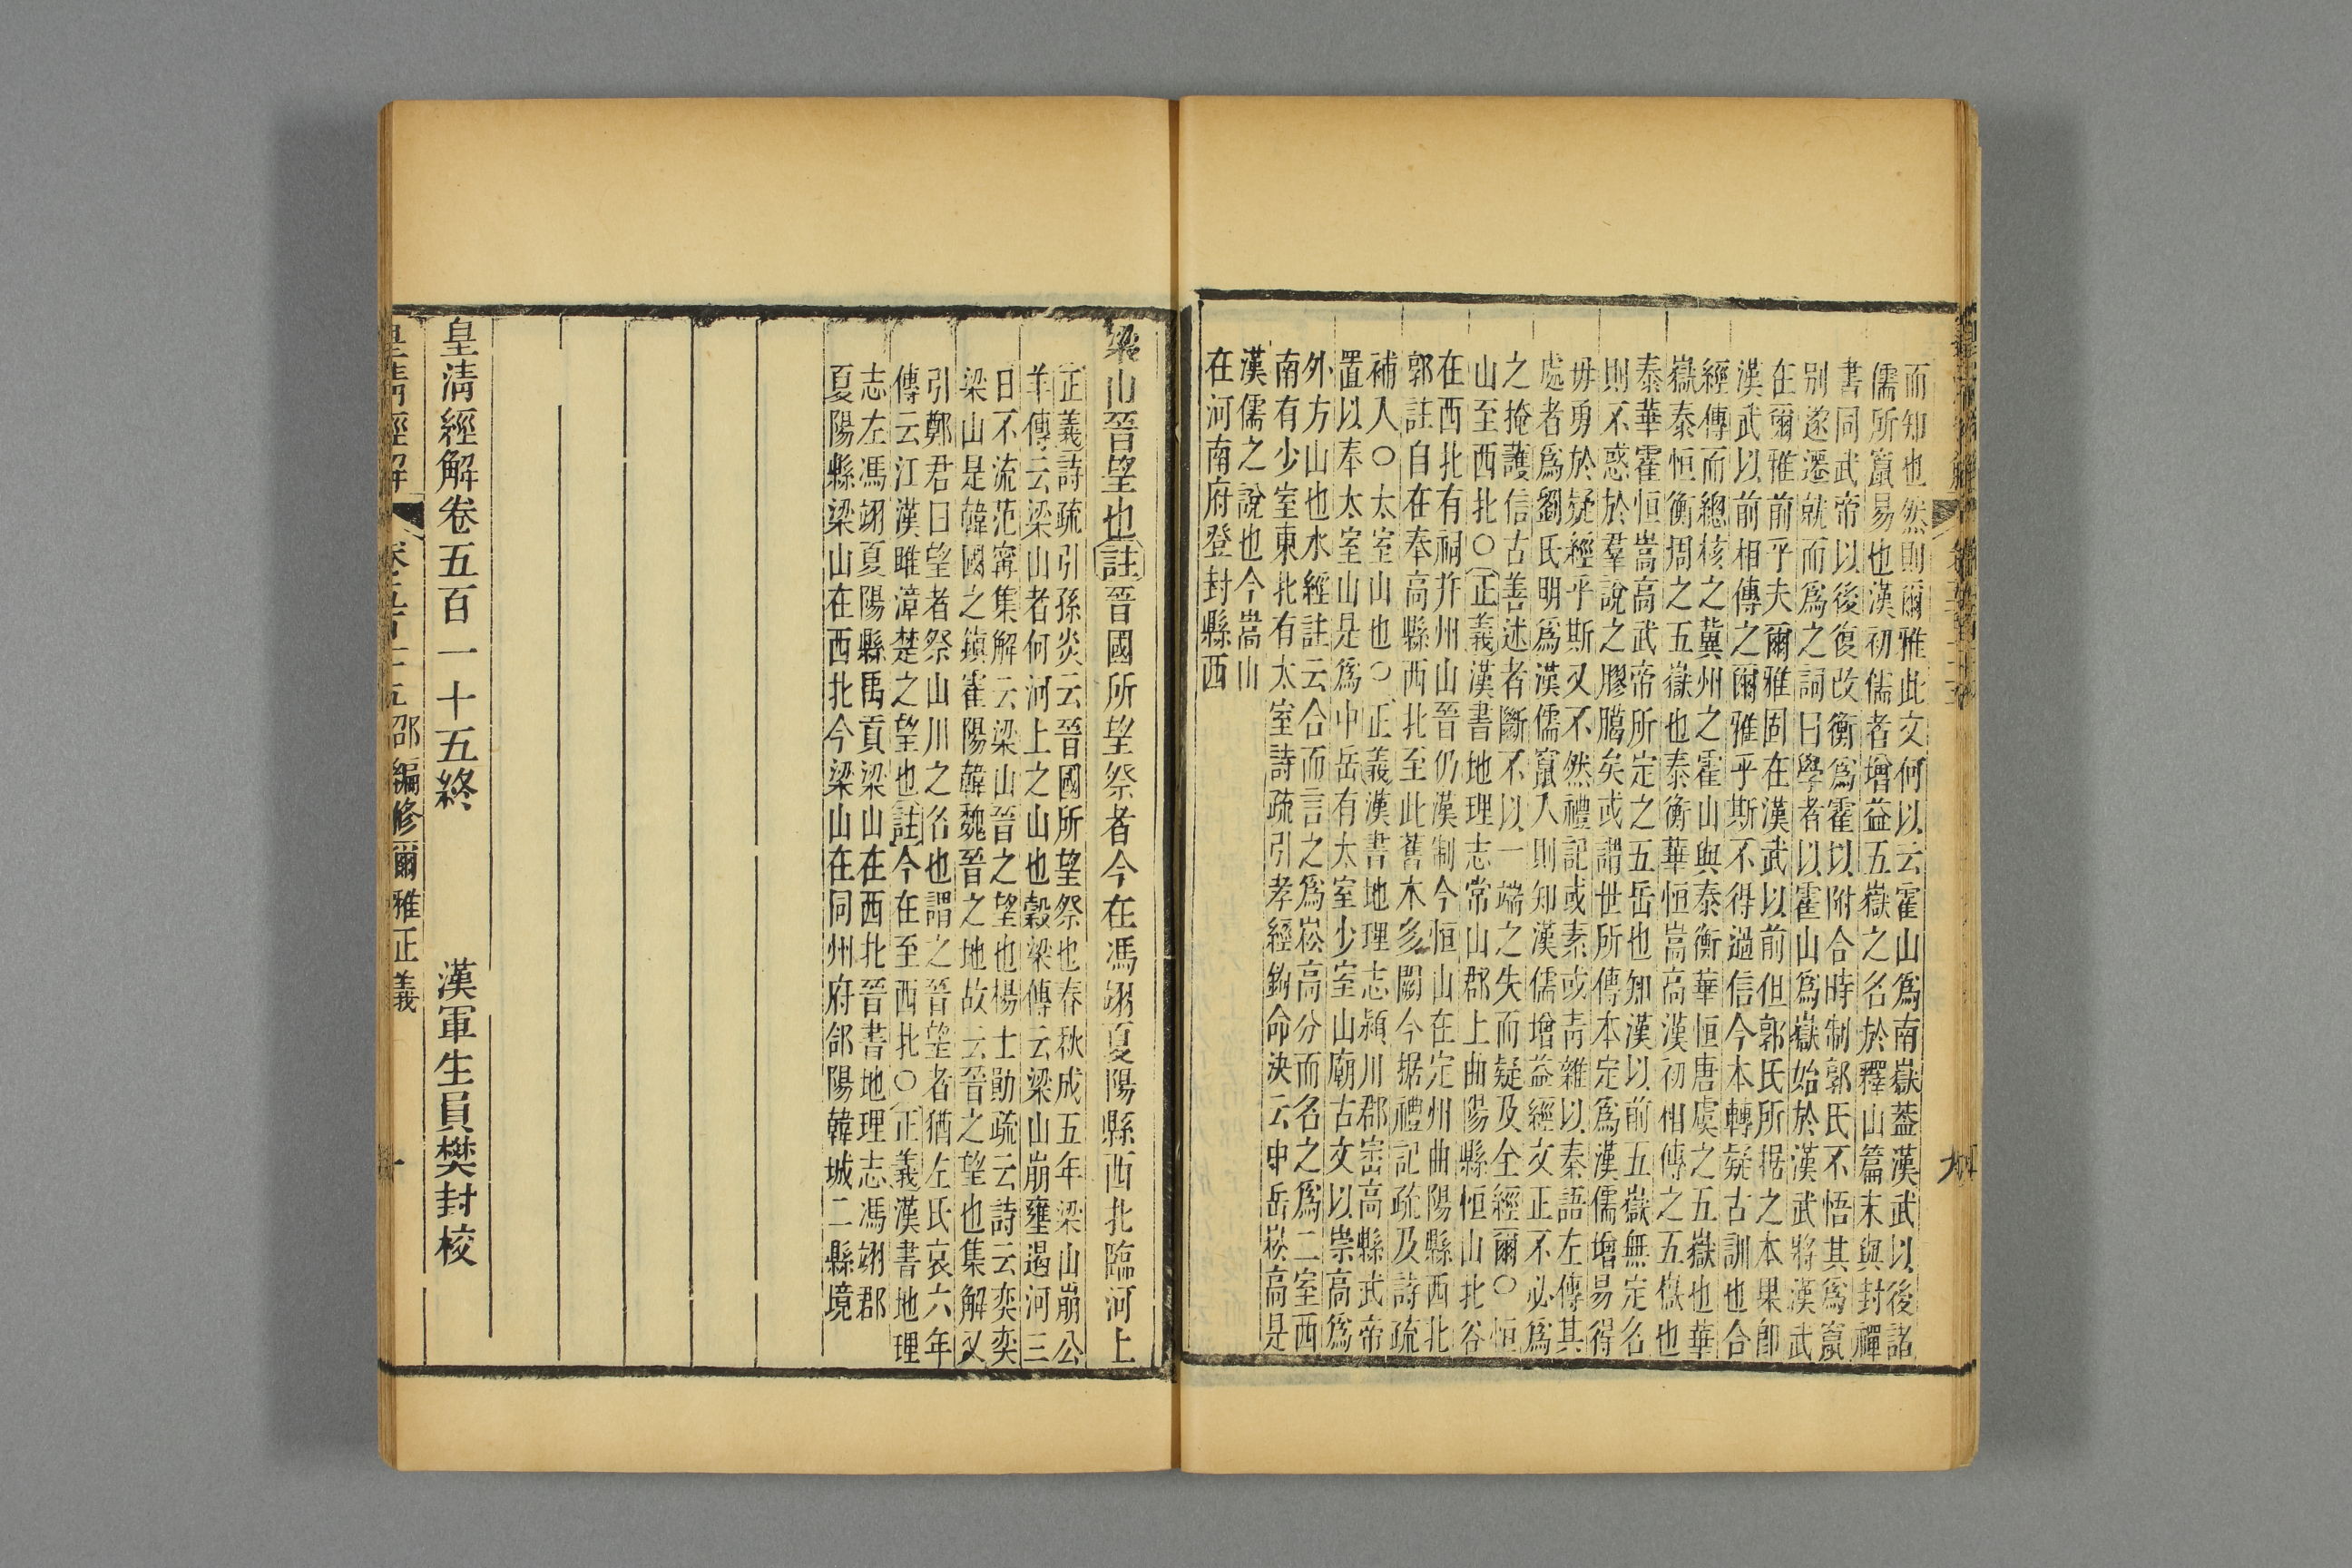 而知也然則爾雅此文何以云霍山爲南嶽葢漢武以後諸
儒所竄易也漢初儒者增益五嶽之名於釋山篇末與封禪
書同武帝以後復改衡爲霍以附合時制郭氏不悟其爲竄
別遂遷就而爲之詞曰學者以霍山爲嶽始於漢武將漢武
在爾雅前乎夫爾雅固在漢武以前但郭氏所据之本果卽
漢武以前相傳之爾雅乎斯不得過信今本轉疑古訓也合
經傳而總核之冀州之霍山與泰衡華恒唐虞之五嶽也華
嶽泰恒衡周之五嶽也泰衡華恒嵩高漢初相傳之五嶽也
泰華霍恒嵩高武帝所定之五岳也知漢以前五嶽無定名
則不惑於羣說之膠牖矣或謂世所傳本定爲漢儒增易得
毋勇於疑經乎斯又不然禮記或素或靑雜以秦語左傳其
處者爲劉氏明爲漢儒竄入則知漢儒增益經文正不必爲
之掩護信古善述者斷不以一端之失而疑及全經爾○恒
山至西北○正義漢書地理志常山郡上曲陽縣恒山北谷
在西北有祠幷州山晉仍漢制今恒山在定州曲陽縣西北
郭註自在奉高縣西北至此舊本多闕今据禮記疏及詩疏
補入○太室山也○正義漢書地理志潁川郡崈高縣武帝
置以奉太室山是爲中岳有太室少室山廟古文以崇高爲
外方山也水經註云合而言之爲崧高分而名之爲二室西
南有少室東北有太室詩疏引孝經鉤命決云中岳崧高是
漢儒之說也今嵩山
在河南府登封縣西
梁山晉望也註晉國所望祭者今在馮翊夏陽縣西北臨河上
正義詩疏引孫炎云晉國所望祭也春秋成五年梁山崩公
羊傳云梁山者何河上之山也穀梁傳云梁山崩壅遏河三
日不流范甯集解云梁山晉之望也楊士勛疏云詩云奕奕
梁山是韓國之鎮霍陽韓魏晉之地故云晉之望也集解又
引鄭君曰望者祭山川之名也謂之晉望者猶左氏哀六年
傳云江漢雎漳楚之望也註今在至西北○正義漢書地理
志左馮翊夏陽縣禹貢梁山在西北晉書地理志馮翊郡
夏陽縣梁山在西北今梁山在同州府郃陽韓城二縣境
皇清經解卷五百一十五終　漢軍生員樊封校
皇清經解　卷五百十五邵編修爾雅正義